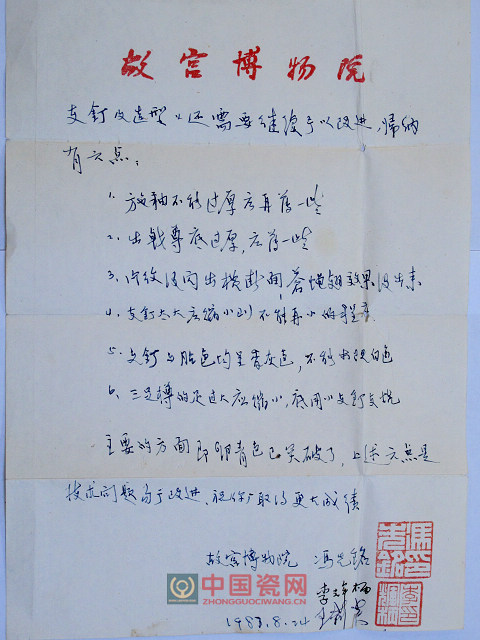 故宫博物院
支钉及造型上还需要继续予以改进,归纳
有六点:
1. 放釉不能过厚应再薄一些
2. 出戟尊底过厚,应薄一些
3. 片纹没闪出横断面,蝉翅效果没出来
4. 支钉太大应缩小到不能再小的程度.
5. 支钉与胎色均呈香灰色,不能出现白色
6. 三足樽的足过大应缩小,底用小支钉支烧
主要的方面即卵青色已突破了,上述六点是
技术问题易于改进,祝你厂取得更大成绩
故宫博物院 冯先铭
李
中国瓷网
ZHONGGUOCIWANG.CN
198.8.24